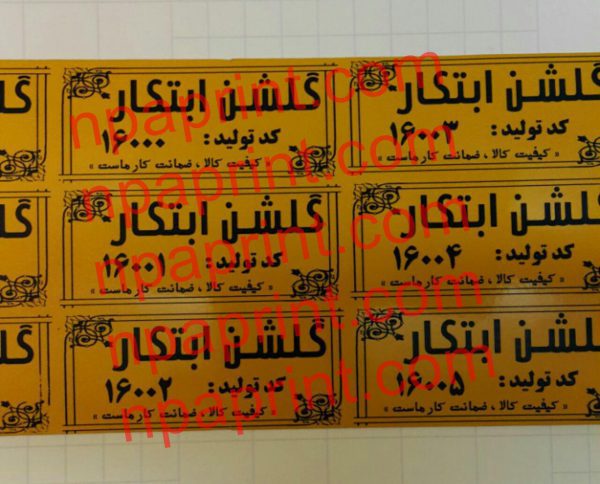 گلشن ابتکار
کد تولید: ۱۶۰۰۰
« کیفیت کالا، ضمانت کار ماست »
گلشن ابتکار
کد تولید: ۱۶۰۰۳
« کیفیت کالا، ضمانت کار ماست »
گلشن ابتکار
کد تولید: ۱۶۰۰۱
« کیفیت کالا، ضمانت کار ماست »
گلشن ابتکار
کد تولید: ۱۶۰۰۴
« کیفیت کالا، ضمانت کار ماست »
گلشن ابتکار
کد تولید: ۱۶۰۰۲
« کیفیت کالا، ضمانت کار ماست »
گلشن ابتکار
کد تولید: ۱۶۰۰۵
« کیفیت کالا، ضمانت کار ماست »
npaprint.com
npaprint.com
npaprint.com
npaprint.com